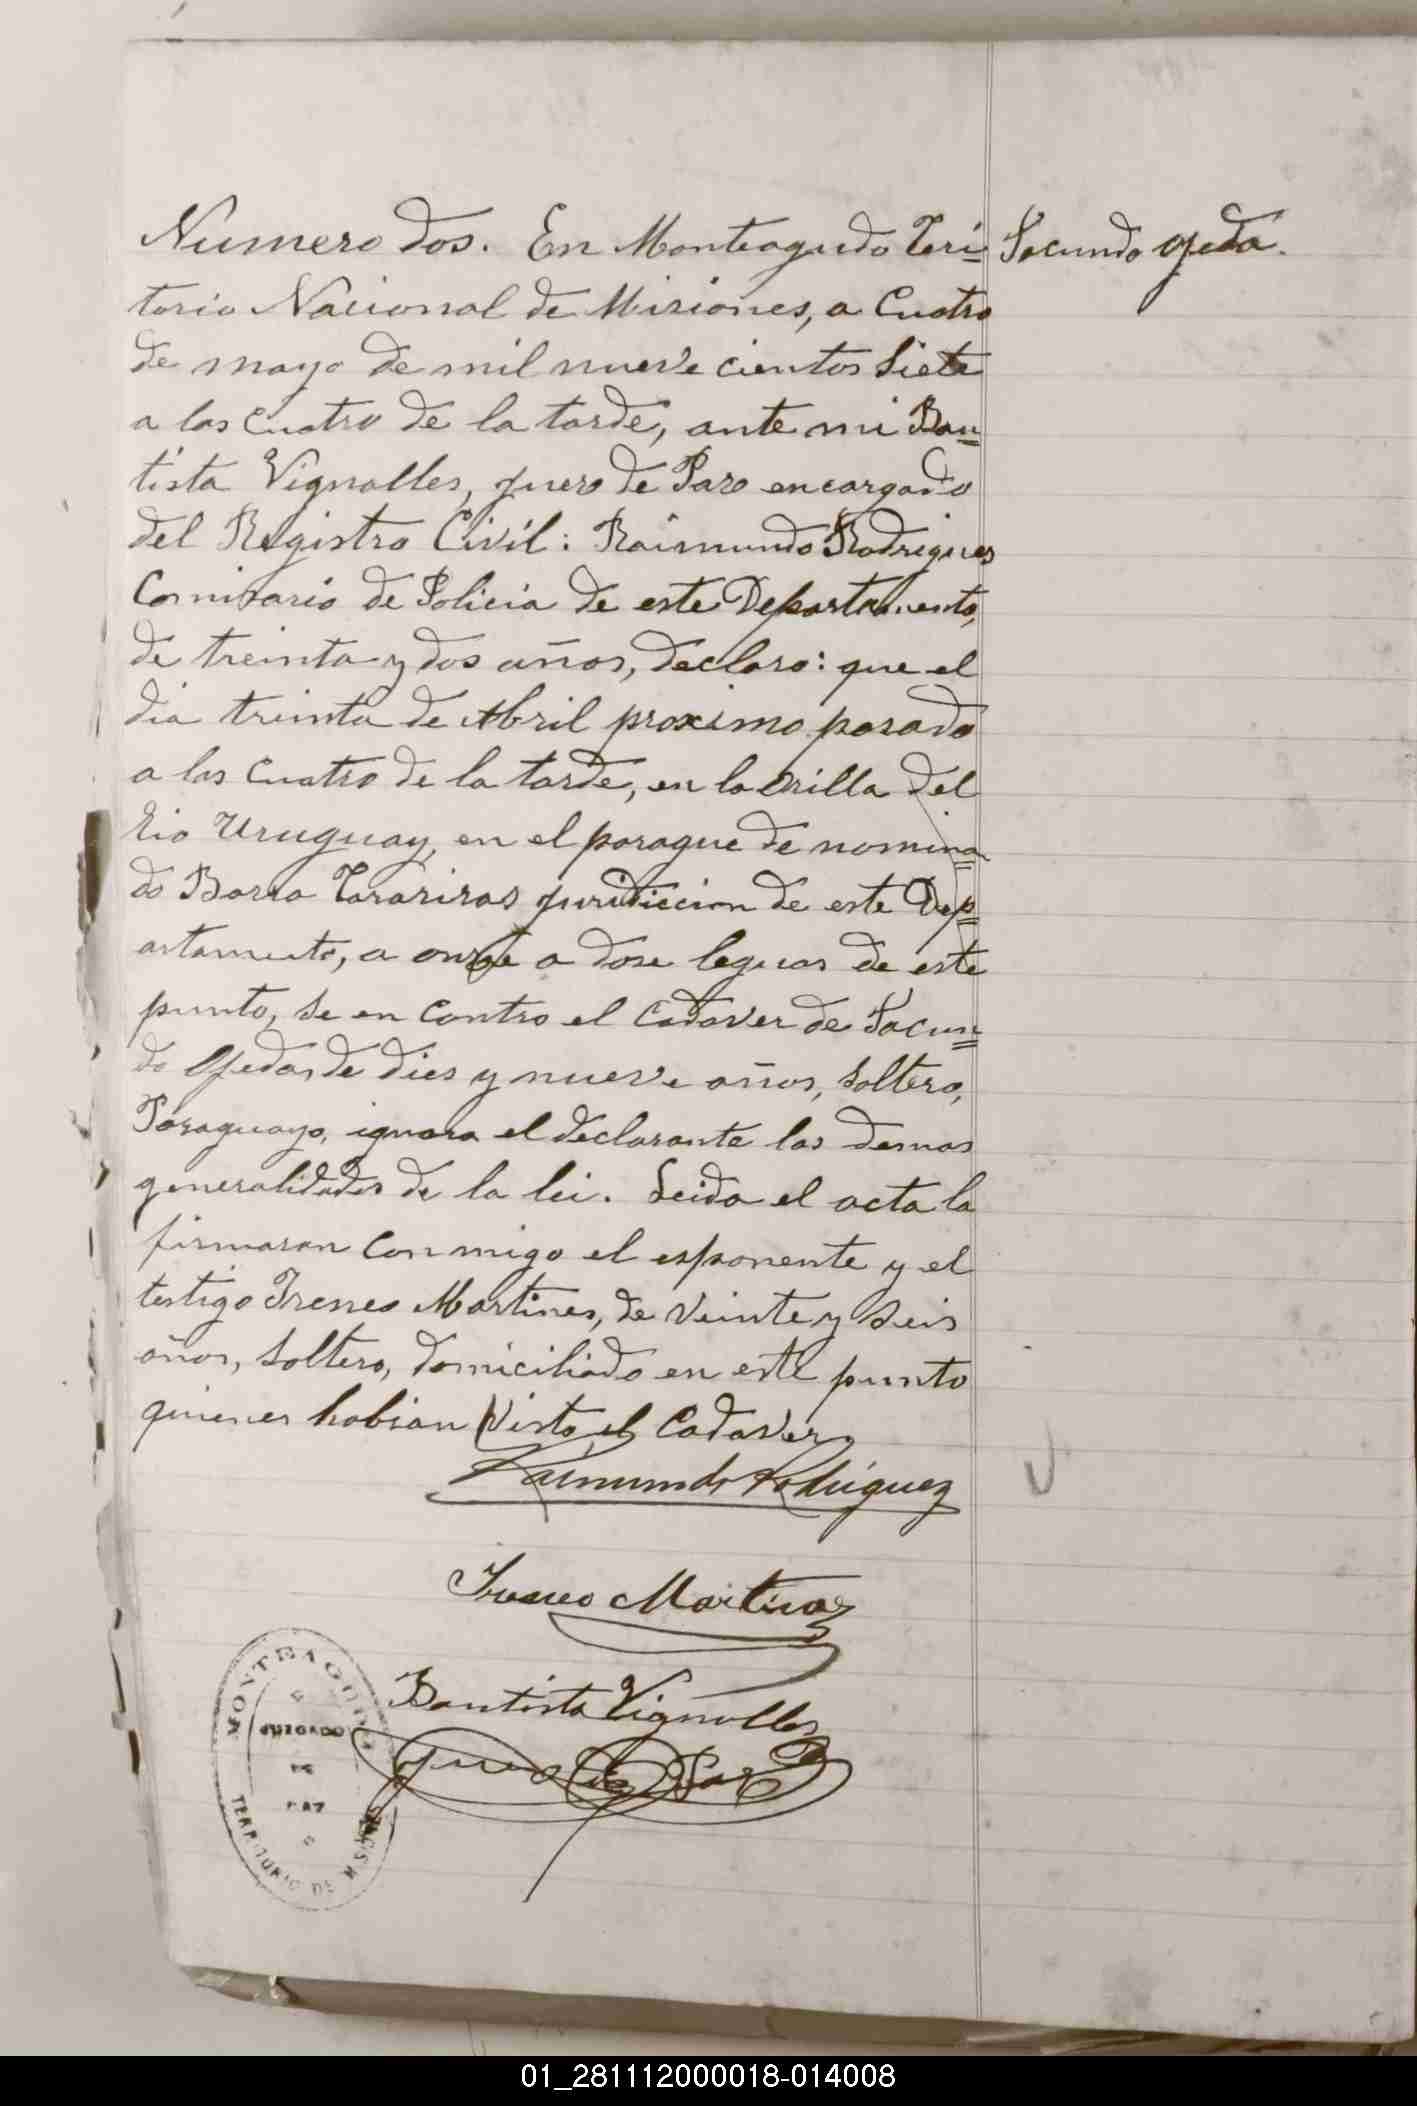 Numero dos. En Monteagudo Teri=
torio Nacional de Misiones, a Cuatro
de mayo de mil nueve cientos Siete
a las cuatro de la tarde, ante mi Bau=
tista Vignolles, juero de Paro encargado
del Registro Civil: Raimundo Rodrigues
Comisario de Policia de este Departamento,
de treinta y dos años, declaro: que el
dia treinta de Abril proximo pasado
a las cuatro de la tarde, en la orilla del
rio Uruguay, en el parague de nomina=
do Barra Tarariras juridiccion de este Dep=
artamento, a onse a dose leguas de este
punto, se en contro el cadaver de Facun=
do Ojeda, de dies y nueve años, soltero,
Paraguayo, ignora el declarante las demas
generalidades de la lei. Leida el acta la
firmaron con migo el esponente y el
testigo Ireneo Martines, de veinte y seis
años, soltero, domiciliado en este punto
quienes habian visto el Cadaver,
Raimundo Rodriguez
Ireneo Martinez
Bautista Vignolles
Jues de Paz
Facundo Ojeda.
MONTEAGUDO
JUZGADO
DE
PAZ
TERRITORIO DE MISIONES
01_281112000018-014008